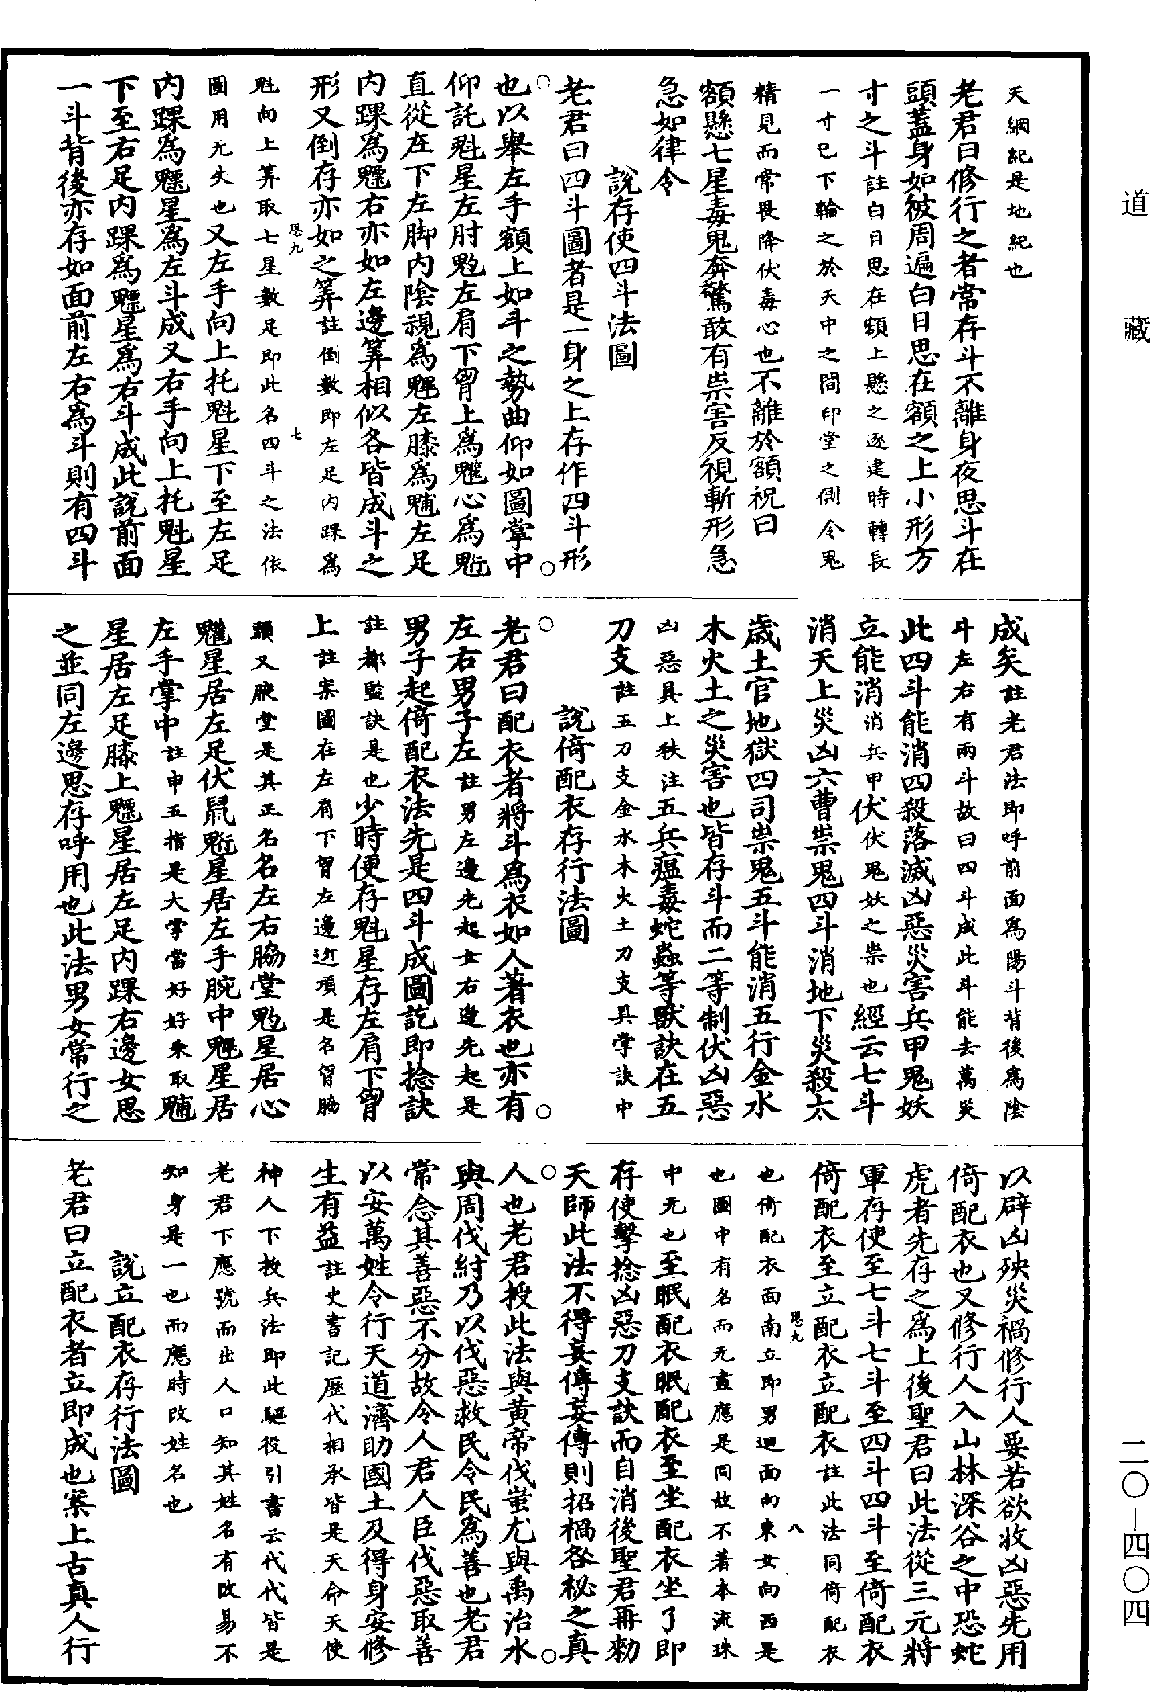 道藏
天綱紀是地紀也
老君曰修行之者常存斗不離身夜思斗在
頭蓋身如被周遍白日思在額之上小形方
寸之斗註白日思在額上懸之逐建時轉長
一寸已下輪之於天中之間印堂之側令鬼
精見而常畏降伏毒心也不離於額祝曰
額懸七星毒鬼奔驚敢有祟害反視斬形急
急如律令
說存使四斗法圖
老君曰四斗圖者是一身之上存作四斗形
也以舉左手額上如斗之勢曲仰如圖掌中
仰託魁星左肘魓左肩下胷上為䰢心為魒
直從左下左脚內陰視為魓左膝為魒左足
內踝為魒右亦如左邊筭相似各皆成斗之
形又倒存亦如之筭註倒數即左足內踝為
魁向上筭取七星數足即此名四斗之法依
圖用无失也又左手向上托魁星下至左足
內踝為魒星為左斗成又右手向上托魁星
下至右足內踝為魒星為右斗成此說前面
一斗背後亦存如面前左右為斗則有四斗
成矣註老君法即呼前面為陽斗背後為陰
斗左右有兩斗故曰四斗成此斗能去萬災
此四斗能消四殺落滅凶惡災害兵甲鬼妖
立能消消兵甲伏伏鬼妖之祟也經云七斗
消天上災凶六曹祟鬼四斗消地下災殺太
歲土官地獄四司祟鬼五斗能消五行金水
木火土之災害也皆存斗而二等制伏凶惡
凶惡具上秩注五兵瘟毒蛇蟲等獸訣在五
刀支註五刀支金水木火土刀支具掌訣中
說倚配衣存行法圖
老君曰配衣者將斗為衣如人著衣也亦有
左右男子左註男左邊先起女右邊先起是
男子起倚配衣法先是四斗成圖訖即捻訣
註都監訣是也少時便存魁星存左肩下胷
上註案圖在左肩下胷左邊近項是名胷脇
頭又腋堂是其正名名左右脇堂魓星居心
䰢星居左足伏鼠魒星居左手腕中魓星居
左手掌中註申五指是大掌當好好乘取魒
星居左足膝上魒星居左足內踝右邊女思
之並同左邊思存呼用也此法男女常行之
以辟凶殃災禍修行人要若欲收凶惡先用
倚配衣也又修行人入山林深谷之中恐蛇
虎者先存之為上後聖君曰此法從三元將
軍存使至七斗七斗至四斗四斗至倚配衣
倚配衣至立配衣立配衣註此法同倚配衣
也倚配衣面南立即男迴面向東女向西是
也圖中有名而无畫應是同故不著本流珠
中无也至眠配衣眠配衣至坐配衣坐了即
存使擊捻凶惡刀支訣而自消後聖君再勑
天師此法不得妄傳妄傳則招禍咎秘之真
人也老君授此法與黃帝伐蚩尤與禹治水
與周伐紂乃以伐惡救民令民為善也老君
常念其善惡不分故令人君人臣伐惡取善
以安萬姓令行天道濟助國土及得身安修
生有益註史書記歷代相承皆是天命天使
神人下教兵法即此驅役引書云代代皆是
老君下應號而出人口知其姓名有改易不
知身是一也而應時改姓名也
說立配衣存行法圖
老君曰立配衣者立即成也案上古真人行
恩九
七
恩九
八
二〇－四〇四